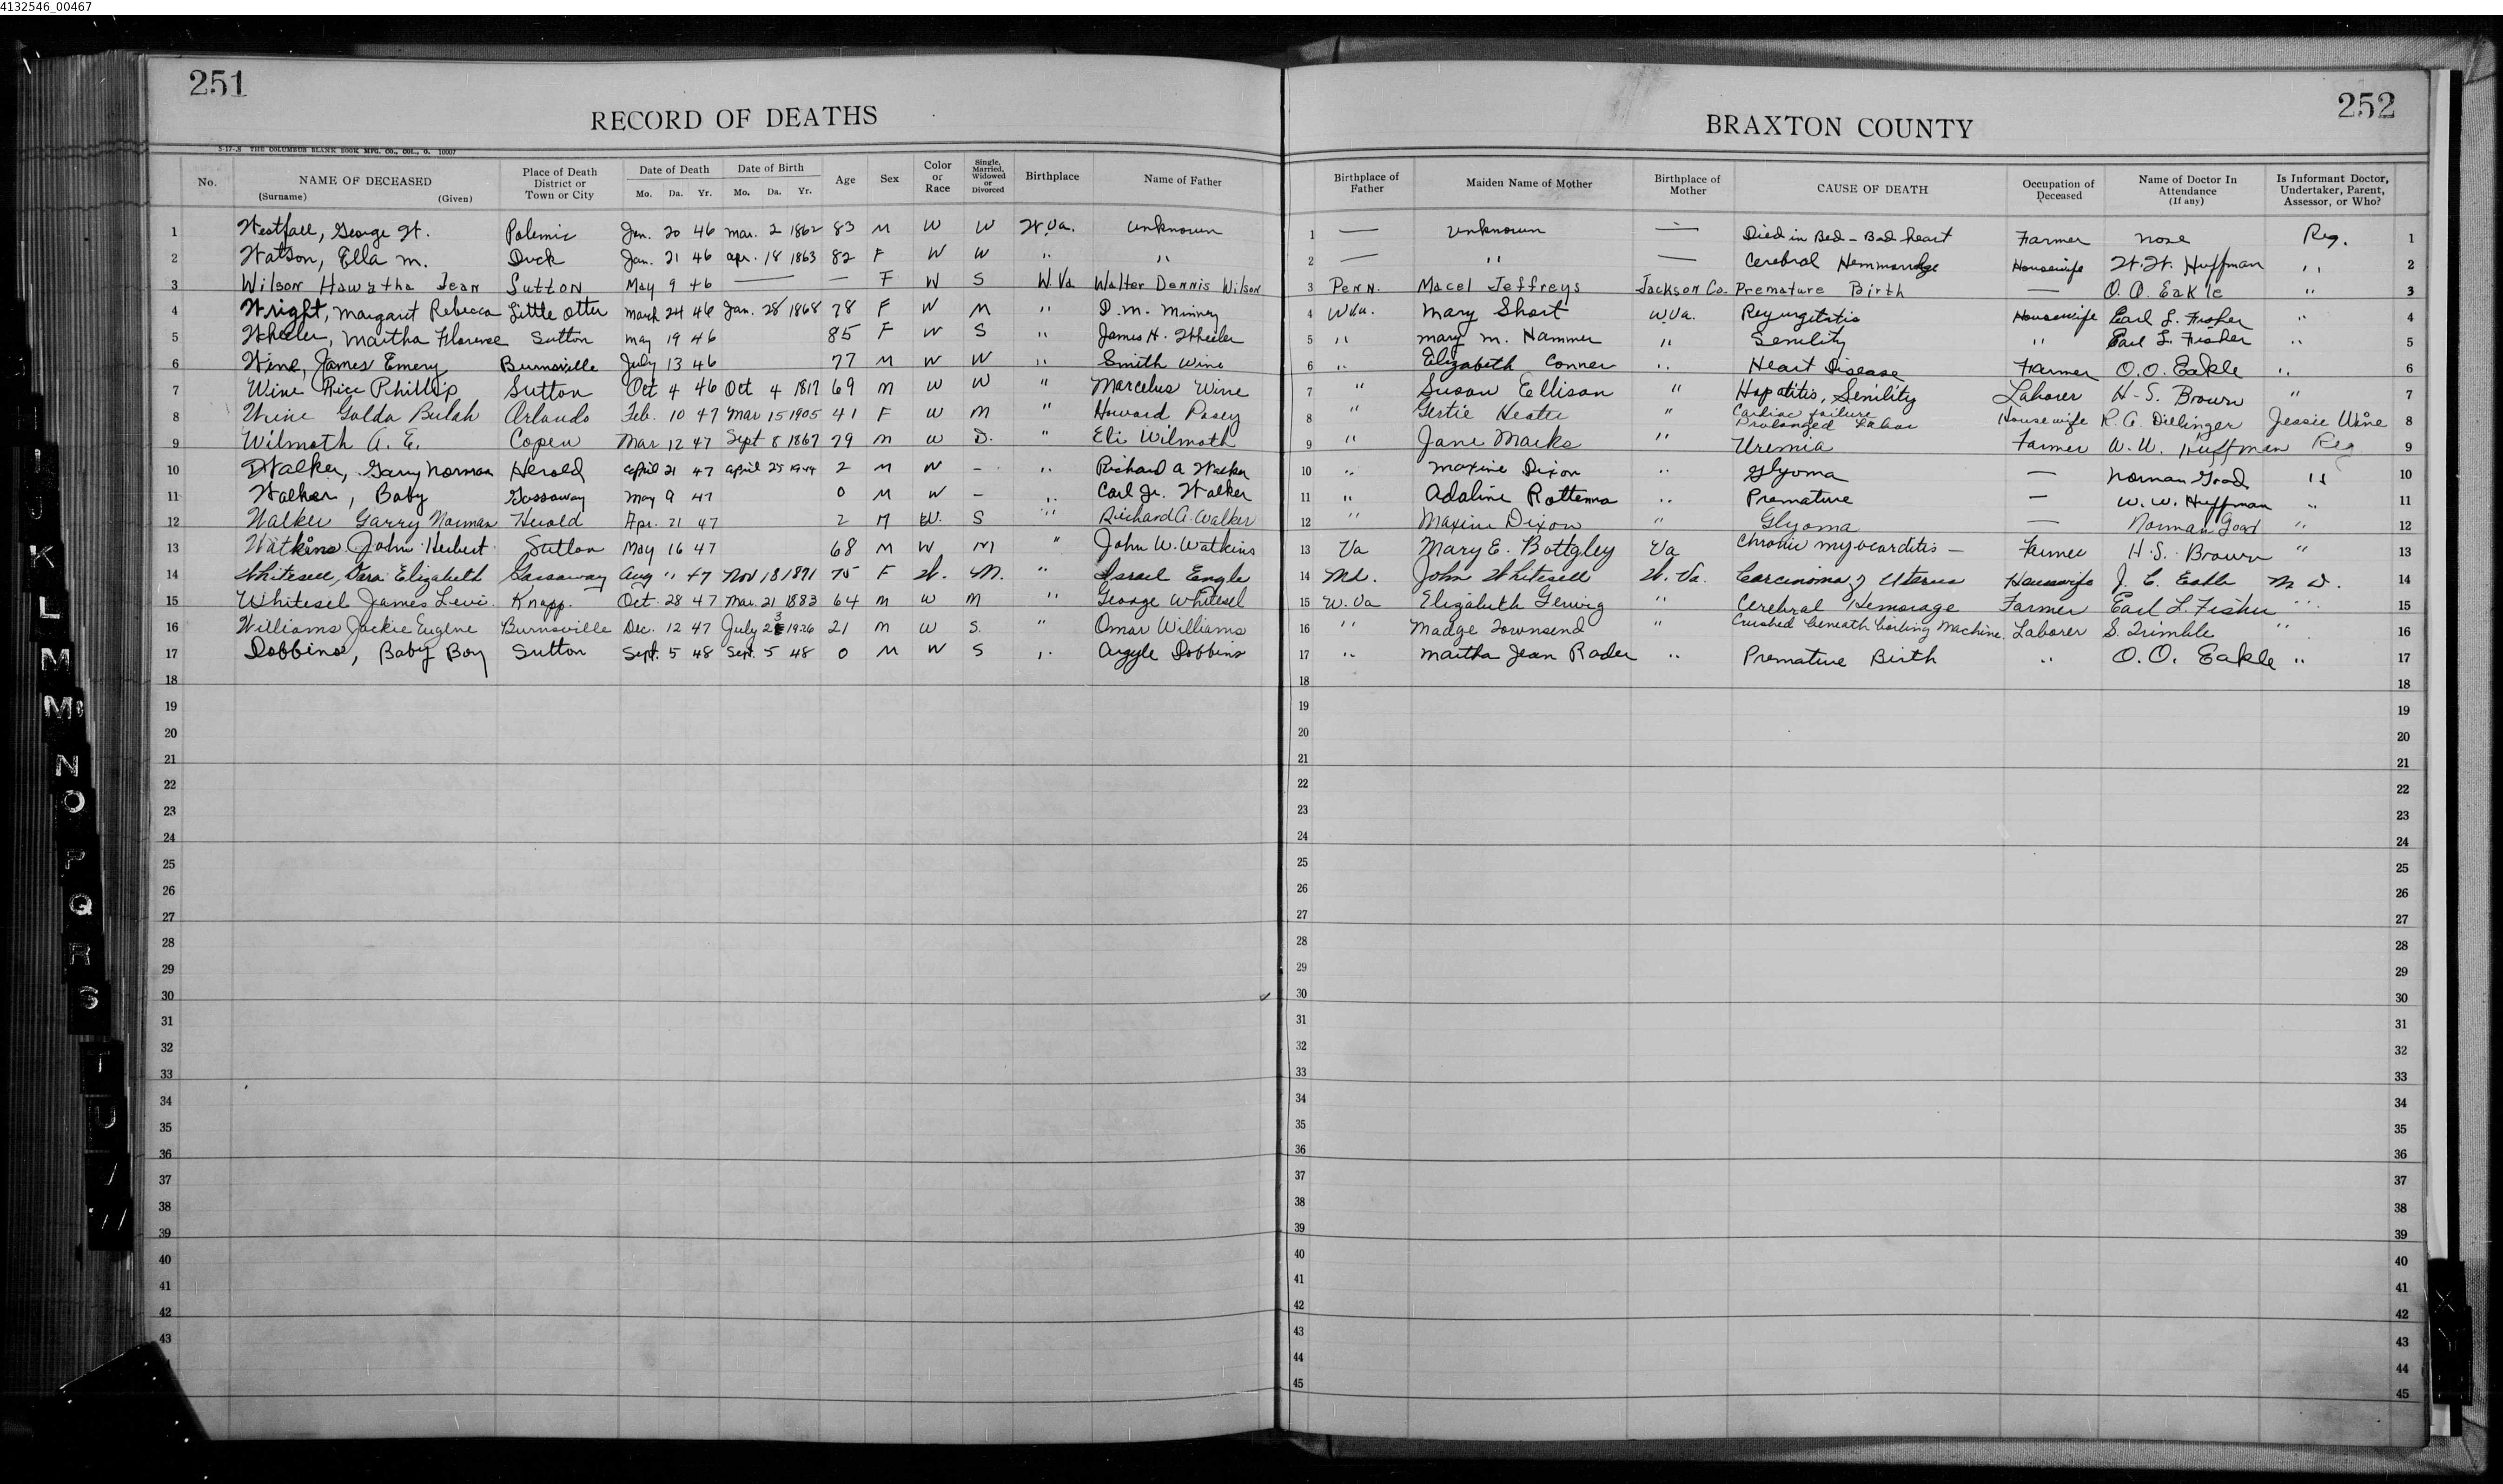 4132546_00467
251
RECORD OF DEATHS
5-17-8 THE COLUMBUS BLANK BOOK MFG. CO., COL., O. 10007
No. NAME OF DECEASED (Surname) (Given) Place of Death District or Town or City Date of Death Mo. Da. Yr. Date of Birth Mo. Da. Yr. Age Sex Color or Race Single, Married, Widowed or Divorced Birthplace Name of Father
1 Westfall, George W. Polemic Jan. 20 46 Mar. 2 1862 83 M W W W.Va. Unknown
2 Watson, Ella M. Duck Jan. 21 46 Apr. 18 1863 82 F W W " "
3 Wilson Hawatha Jean Sutton May 9 46 — — F W S W.Va Walter Dennis Wilson
4 Wright, Margaret Rebecca Little Otter March 24 46 Jan. 28 1868 78 F W M " D. M. Minney
5 Wheeler, Martha Florence Sutton May 19 46 85 F W S " James H. Wheeler
6 Wine, James Emery Burnsville July 13 46 77 M W W " Smith Wine
7 Wine Rice Phillip Sutton Oct 4 46 Oct 4 1817 69 M W W " Marcelus Wine
8 Wine Golda Bulah Orlando Feb. 10 47 Mar 15 1905 41 F W M " Howard Posey
9 Wilmoth A. E. Copen Mar 12 47 Sept 8 1867 79 M W D. " Eli Wilmoth
10 Walker, Gary Norman Herold April 21 47 April 25 1944 2 M W - " Richard A Walker
11 Walker, Baby Gassaway May 9 47 0 M W - " Carl Jr. Walker
12 Walker Garry Norman Herold Apr. 21 47 2 M W. S " Richard A. Walker
13 Watkins John Herbert Sutton May 16 47 68 M W M " John W. Watkins
14 Whitesell, Dora Elizabeth Gassaway Aug " 47 Nov 18 1871 75 F W. M. " Israel Engle
15 Whitesel James Levi Knapp. Oct. 28 47 Mar. 21 1883 64 M W M " George Whitesel
16 Williams Jackie Eugene Burnsville Dec. 12 47 July 23 1926 21 M W S. " Omar Williams
17 Dobbins, Baby Boy Sutton Sept. 5 48 Sept. 5 48 0 M W S " Argyle Dobbins
18
19
20
21
22
23
24
25
26
27
28
29
30
31
32
33
34
35
36
37
38
39
40
41
42
43
252
BRAXTON COUNTY
Birthplace of Father Maiden Name of Mother Birthplace of Mother CAUSE OF DEATH Occupation of Deceased Name of Doctor In Attendance (If any) Is Informant Doctor, Undertaker, Parent, Assessor, or Who?
1 — Unknown — Died in Bed - Bad heart Farmer none Reg. 1
2 — " — Cerebral Hemmorrdge Housewife W. W. Huffman " 2
3 Penn. Macel Jeffreys Jackson Co. Premature Birth — O. O. Eakle " 3
4 W.Va. Mary Short W.Va. Regurgititis Housewife Earl L. Fisher " 4
5 " Mary M. Hammer " Senility " Earl L. Fisher " 5
6 " Elizabeth Conner " Heart Disease Farmer O. O. Eakle " 6
7 " Susan Ellison " Hepatitis, Senility Laborer H. S. Brown " 7
8 " Gertie Heater " Cardiac failure Prolonged Labor Housewife R. A. Dillinger Jessie Wine 8
9 " Jane Marks " Uremia Farmer W. W. Huffman Reg 9
10 " Maxine Dixon " Glyoma — Norman Good " 10
11 " Adaline " Premature — W. W. Huffman " 11
12 " Maxine Dixon " Glyoma — Norman Good " 12
13 Va Mary E. Bottgley Va Chronic myocarditis — Farmer H. S. Brown " 13
14 Md. John Whitesell W. Va. Carcinoma of Uterus Housewife J. C. Eakle M D. 14
15 W. Va Elizabeth Gerwig " Cerebral Hemorage Farmer Earl L. Fisher " 15
16 " Madge Townsend " Crushed beneath Machine. Laborer S. Trimble " 16
17 " Martha Jean Rader " Premature Birth " O. O. Eakle " 17
18 18
19 19
20 20
21 21
22 22
23 23
24 24
25 25
26 26
27 27
28 28
29 29
30 30
31 31
32 32
33 33
34 34
35 35
36 36
37 37
38 38
39 39
40 40
41 41
42 42
43 43
44 44
45 45
H
I
J
K
L
M
Mc
N
O
P
Q
R
S
T
U
V
W
X
Y